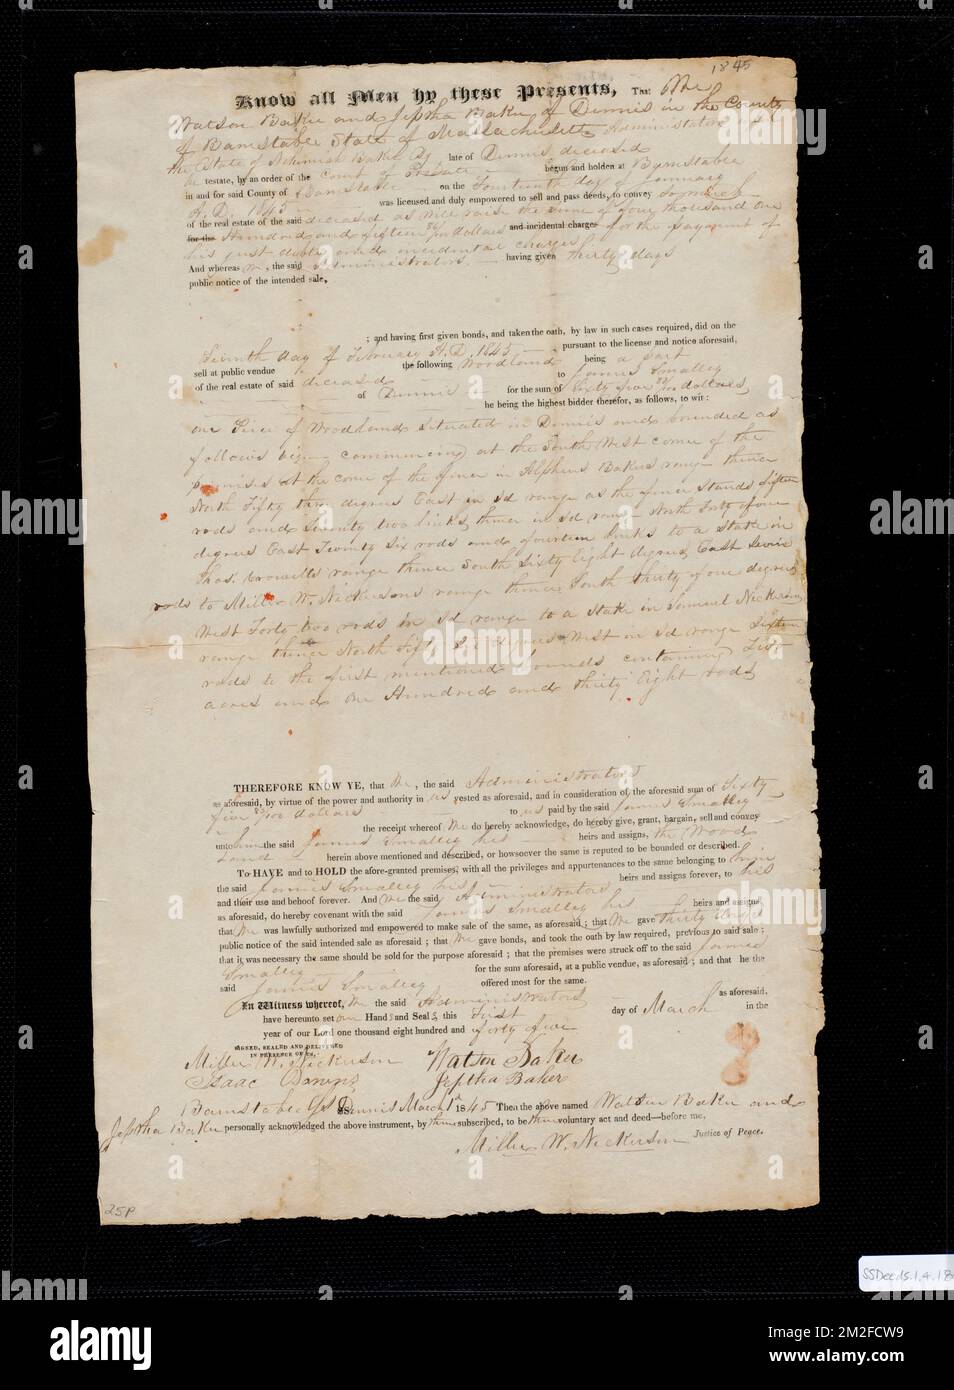 1845
Know all Men by these Presents, That We
Watson Baker and Jeptha Baker of Dennis in the County
of Barnstable State of Massachusetts Administrators on
the Estate of Nehemiah Baker late of Dennis deceased
testate, by an order of the Court of Probate begun and holden at Barnstable
in and for said County of Barnstable on the Fourteenth day of January
A.D. 1845 was licensed and duly empowered to sell and pass deeds, to convey so much
of the real estate of the said deceased as will raise the sum of four thousand one
for the Hundred and fifteen /100 dollars and incidental charges for the payment of
his just debts and incidental charges
And whereas we, the said Administrators having given thirty days
public notice of the intended sale,
; and having first given bonds, and taken the oath, by law in such cases required, did on the
day of February A.D. 1845 pursuant to the license and notice aforesaid,
sell at public vendue the following Woodland being a part
of the real estate of said deceased to James Smalley
of Dennis for the sum of Sixty five /100 dollars
he being the highest bidder therefor, as follows, to wit:
one Piece of Woodland situated in Dennis and bounded as
follows viz commencing at the South West corner of the
premises at the corner of the fence in Alpheus Bakers range thence
North Fifty three degrees East in sd range as the fence stands fifteen
rods and Seventy two links, thence in sd range North forty four
degrees East Twenty Six rods and fourteen links to a Stake in
Thos. Crowells range thence South Sixty Eight degrees East Seven
rods to Miller W. Nickersons range thence South thirty four degrees
West Forty two rods in sd range to a stake in Samuel Nickersons
range thence North Fifty Six degrees West in sd range Sixteen
rods to the first mentioned bounds containing
acres and one Hundred and thirty Eight rods
THEREFORE KNOW YE, that We, the said Administrators
as aforesaid, by virtue of the power and authority in us vested as aforesaid, and in consideration of the aforesaid sum of Sixty
five /100 dollars to us paid by the said James Smalley
the receipt whereof We do hereby acknowledge, do hereby give, grant, bargain, sell and convey
unto him the said James Smalley his heirs and assigns, the Wood
Land herein above mentioned and described, or howsoever the same is reputed to be bounded or described.
To HAVE and to HOLD the afore-granted premises, with all the privileges and appurtenances to the same belonging to him
the said James Smalley his heirs and assigns forever, to his
and their use and behoof forever. And We the said Administrators
as aforesaid, do hereby covenant with the said James Smalley his heirs and assigns
that We was lawfully authorized and empowered to make sale of the same, as aforesaid; that We gave thirty days
public notice of the said intended sale as aforesaid; that We gave bonds, and took the oath by law required, previous to said sale;
that it was necessary the same should be sold for the purpose aforesaid; that the premises were struck off to the said James
Smalley for the sum aforesaid, at a public vendue, as aforesaid; and that he the
said James Smalley offered most for the same.
In Witness whereof, We the said Administrators as aforesaid,
have hereunto set our Hands and Seals this First day of March in the
year of our Lord one thousand eight hundred and forty five
SIGNED, SEALED AND DELIVERED
IN PRESENCE OF US,
Miller W. Nickerson Watson Baker
Isaac Jeptha Baker
Barnstable SS. Dennis March 1 1845 Then the above named Watson Baker and
Jeptha Baker personally acknowledged the above instrument, by them subscribed, to be their voluntary act and deed—before me,
Miller W. Nickerson Justice of Peace.
25P
SSDec.15.1.4.18
alamy
Image ID: 2M2FCW9
www.alamy.com